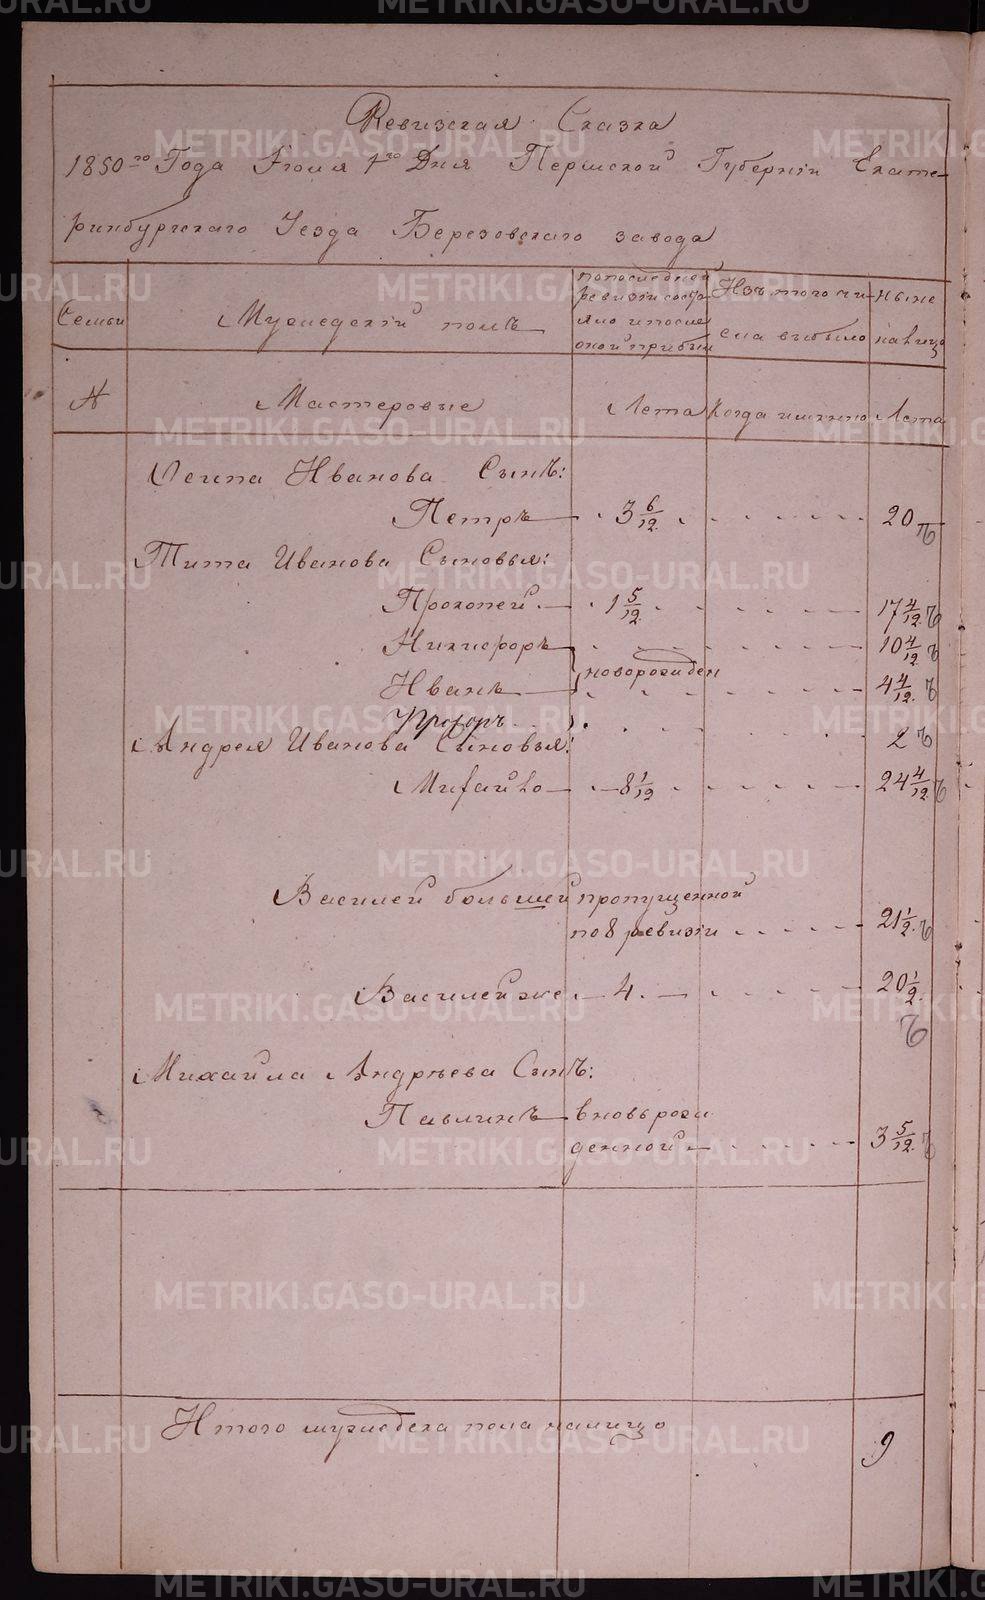 Ревизская Сказка
1850го Года Июля 1го Дня Пермской Губерніи Екате-
ринбургскаго Уезда Березовскаго завода
Семьи
Мужедскій полъ
попоследней
ревизіи состо-
яло ипосле
оной прибыл
Изъ того чи-
сла выбыло
Ныне
налицо
№
Мастеровые
Лета
Когда имянно
Лета
Осипа Иванова Сынъ:
Петръ 3 6/12 20
Тита Иванова Сыновья:
Прокопей 1 5/12 17 4/12
Никифоръ 10 4/12
новорожден
Иванъ 4 4/12
Прохоръ 2
Андрея Иванова Сыновья:
Михайло 8 1/12 24 4/12
Василей большей пропущенной
по 8 ревизіи 21 1/2
Василей же 4 20 1/2
Михайла Андреева Сынъ:
Павлинъ вновь рож
денной 3 5/12
Итого мужедска пола налицо
9
METRIKI.GASO-URAL.RU